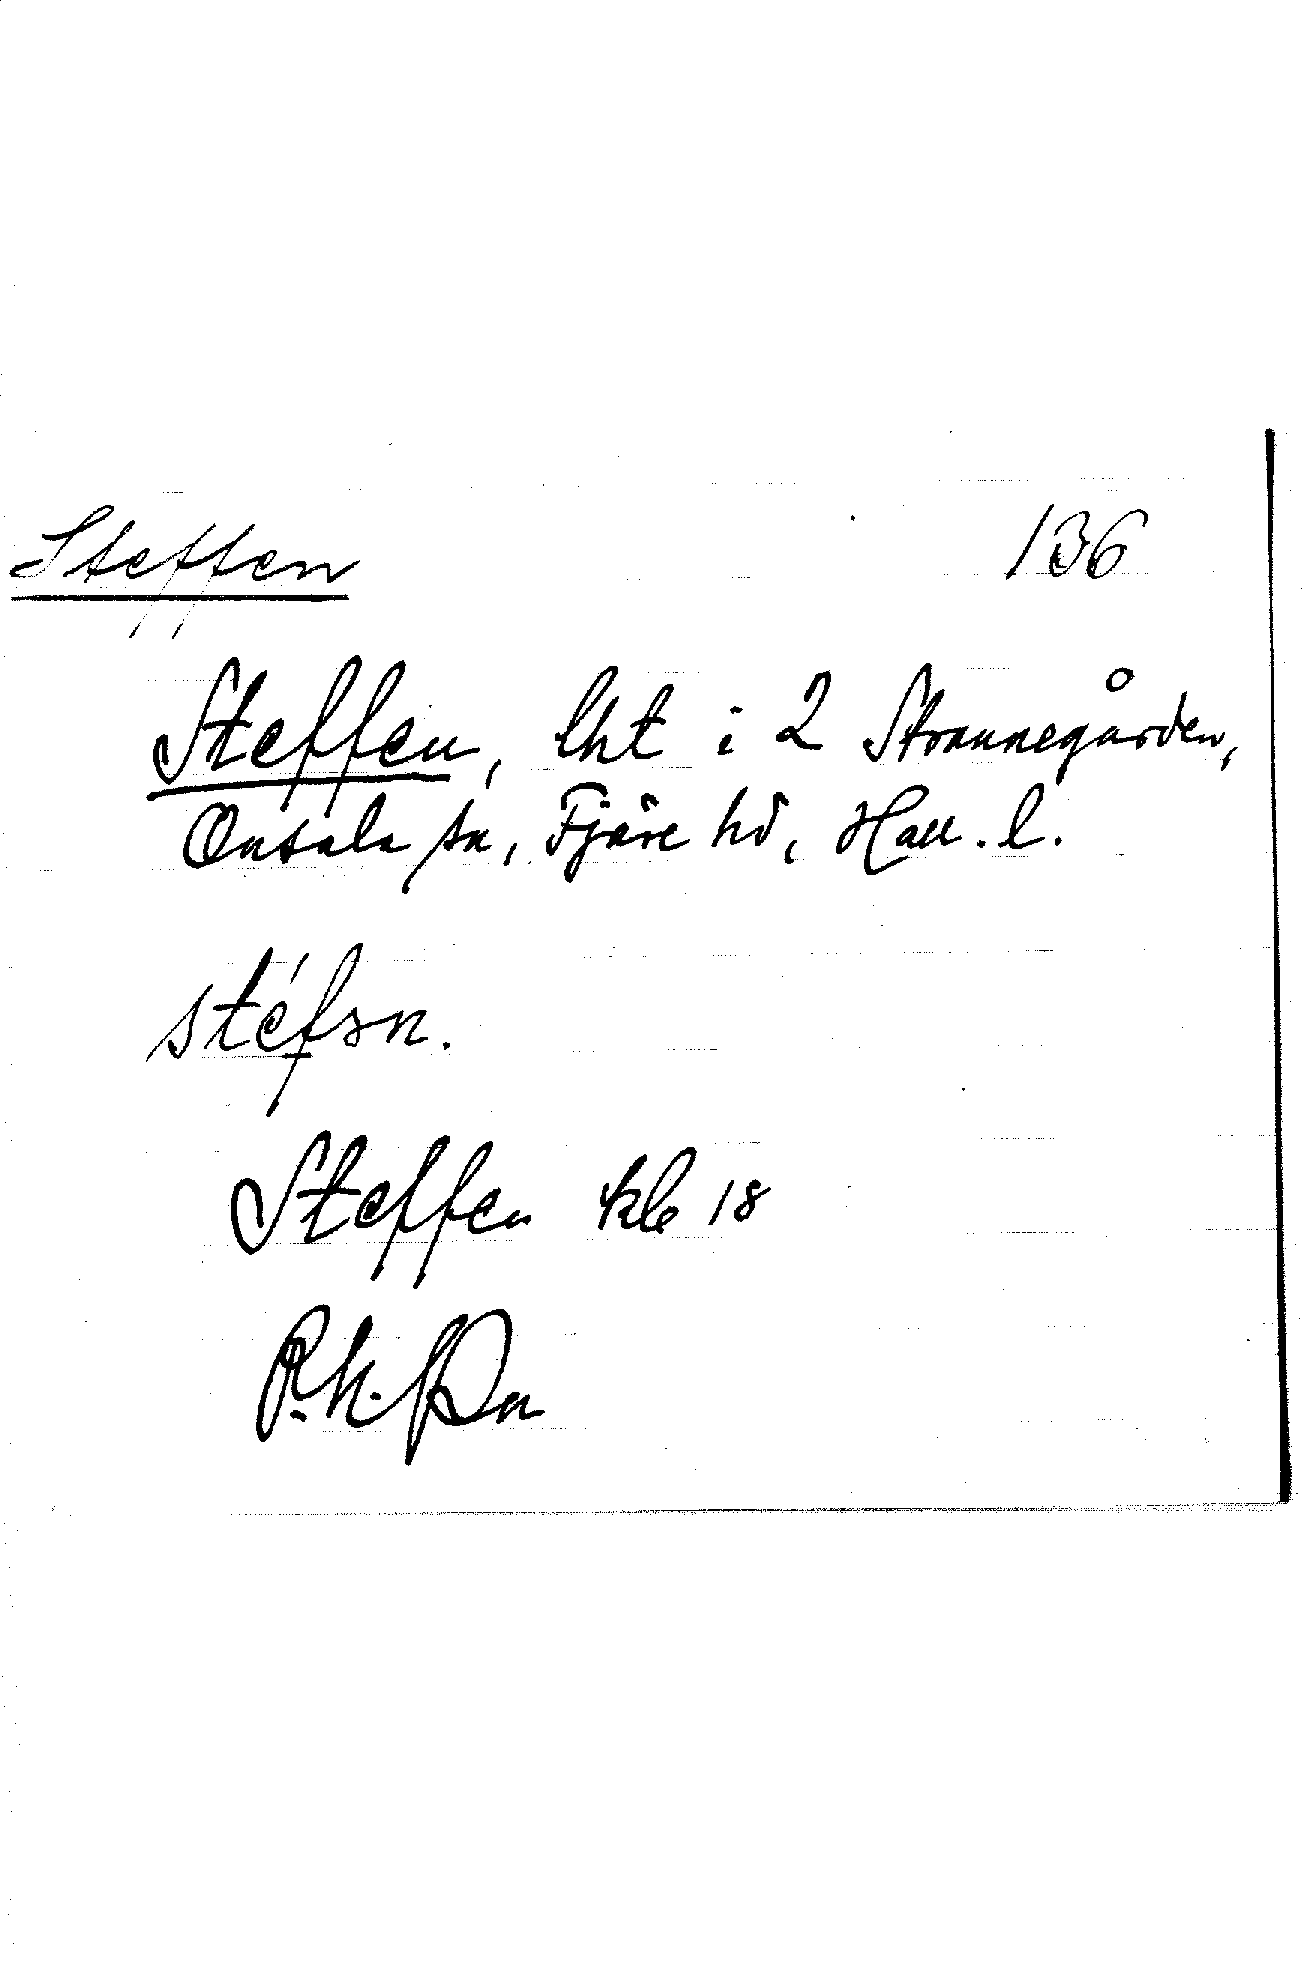 Steffen 136
Steffen, lht i 2 Strannegården,
Onsala sn, Fjäre hd, Hall. l.
stéfsn.
Steffen kle 18